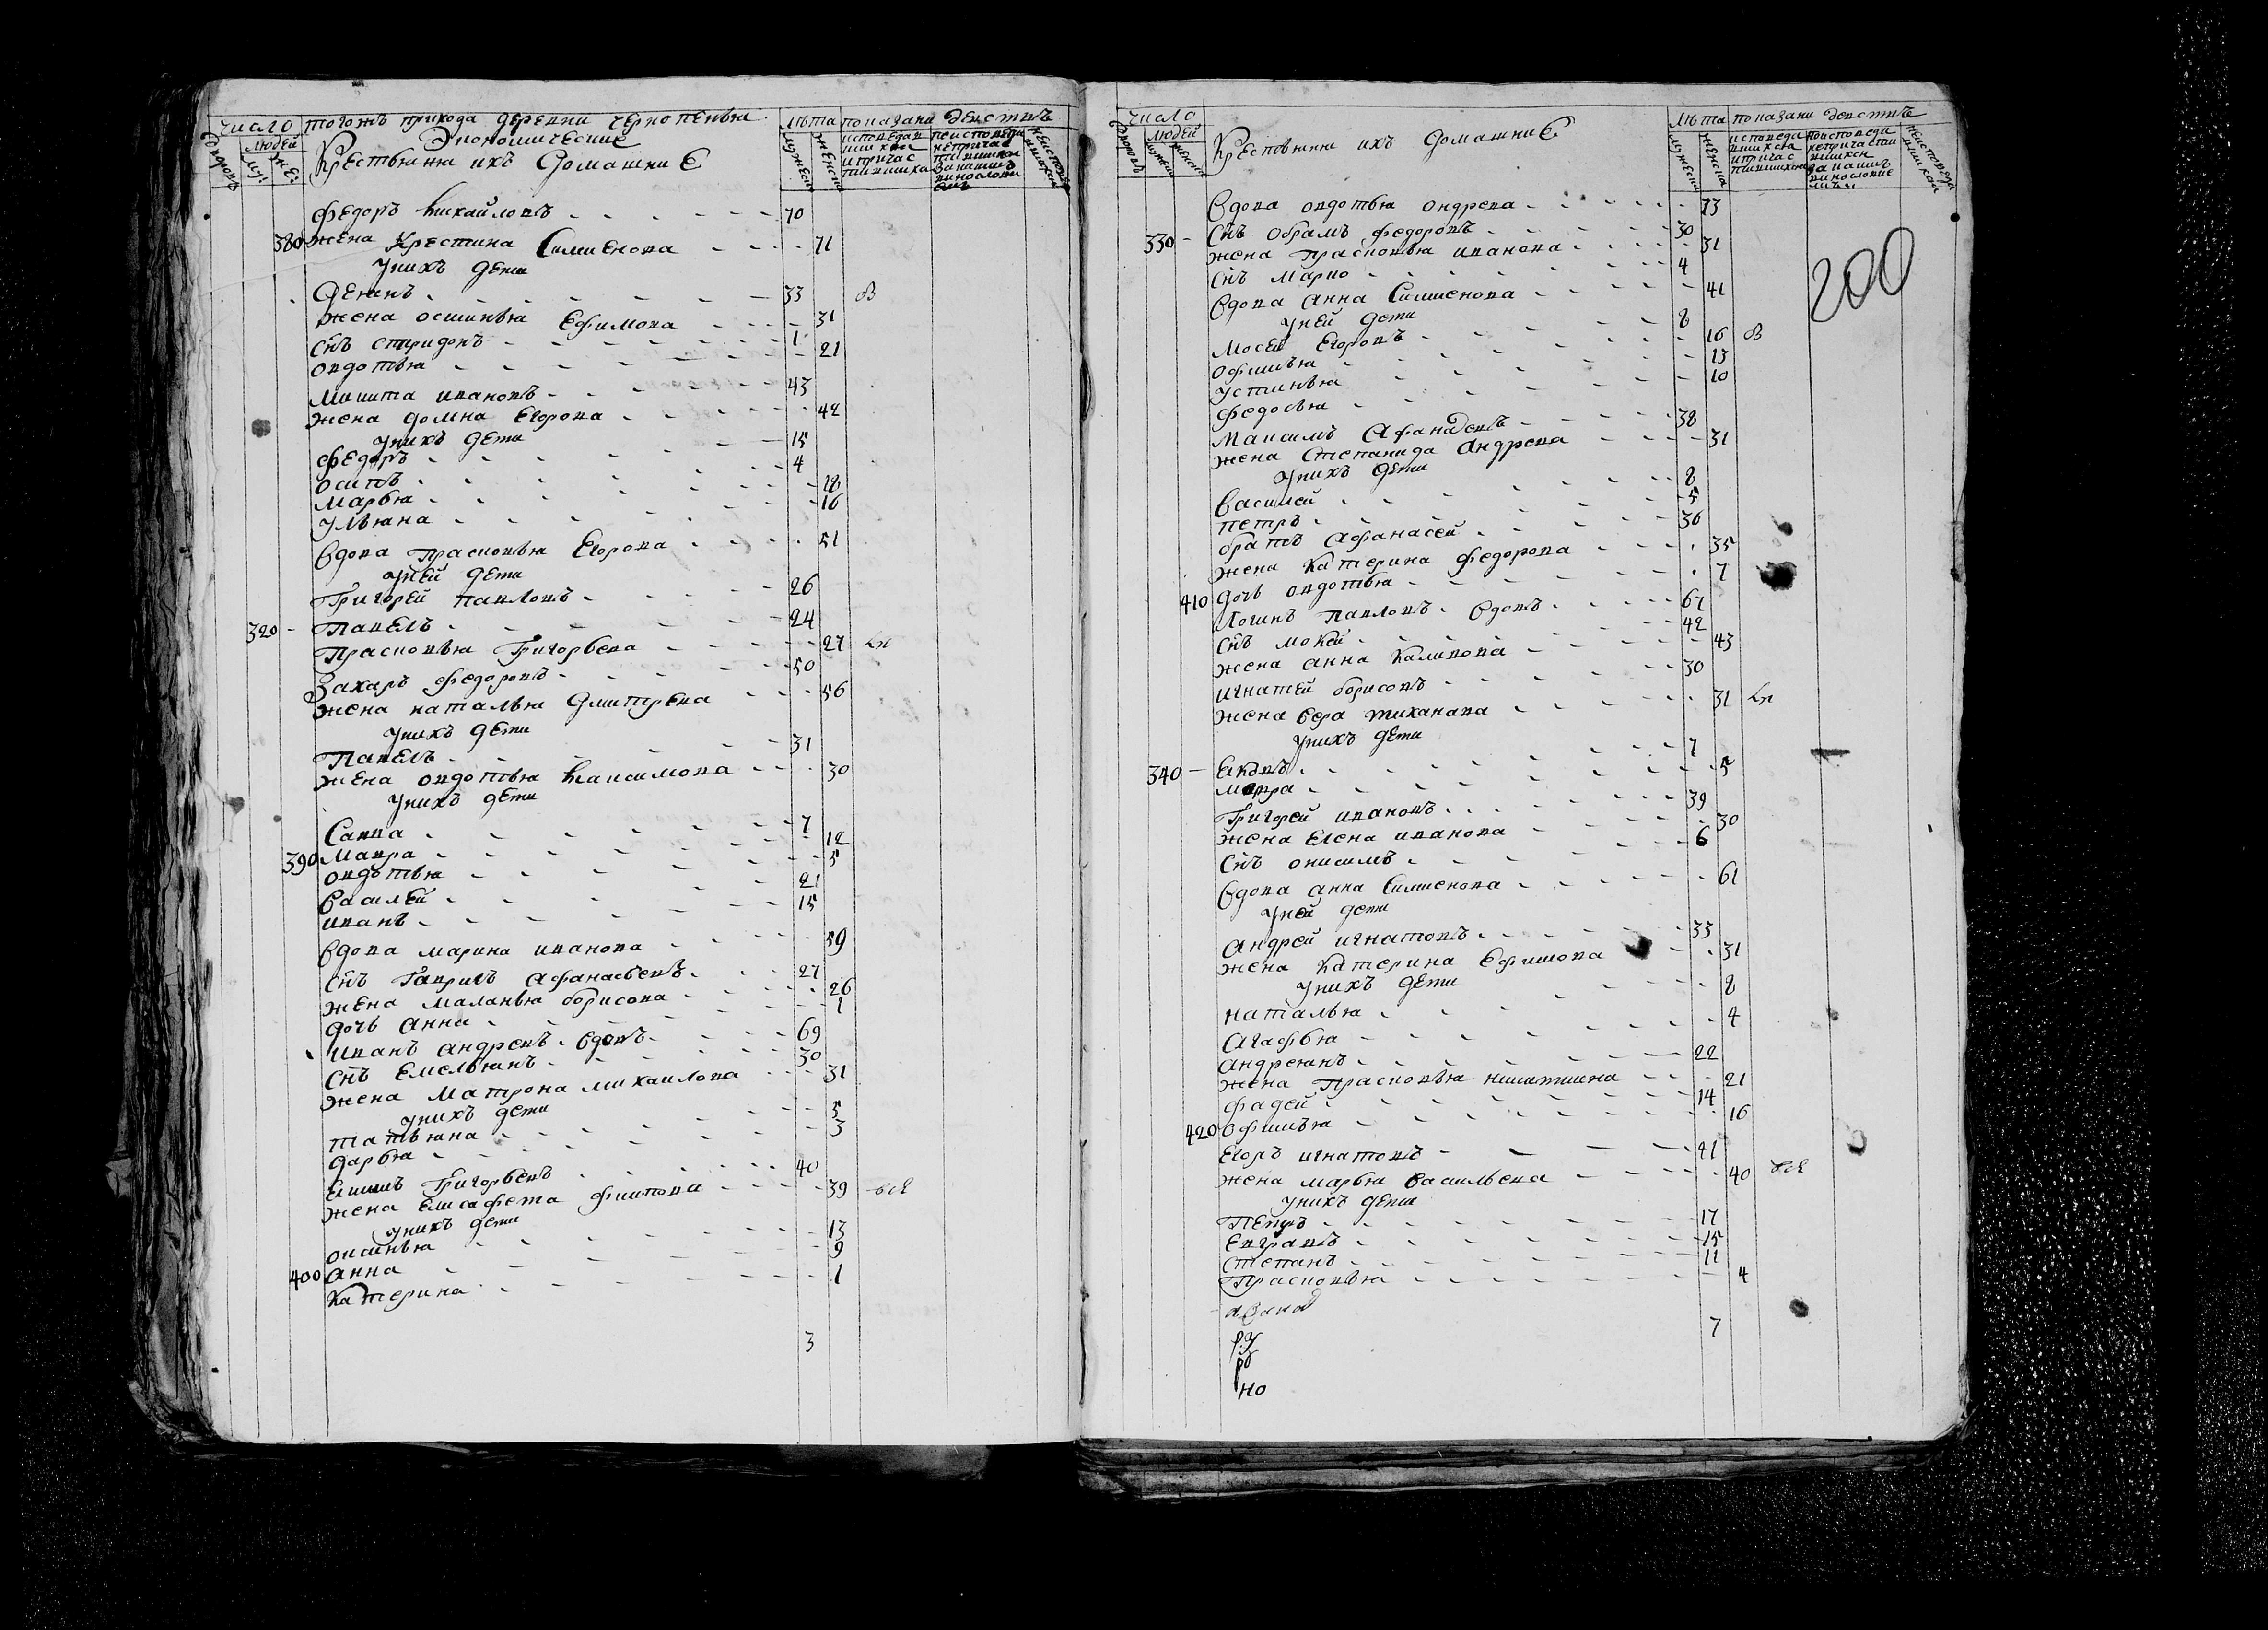 число тогожъ прихода деревни чернопенья лѣта показани действъ
Экономические
людей
Крестьяни ихъ домашние
дворовъ муж: жен: мужеск женска
федоръ михайловъ 70
380 жена Крестина Симионова 71
унихъ дети
Деянъ 33
жена осипвья Ефимова 31
снъ спиридонъ 1
овдотья 21
микита ивановъ 43
жена домна Егорова 42
унихъ дети
федоръ 15
осипъ 4
марья 18
ульяна 16
вдова прасковья Егорова 51
уней дети
Григорей павловъ 26
320 Павелъ 24
Прасковья Григорьева 27
Захаръ федоровъ 50
жена наталья дмитрева 56
унихъ дети
Павелъ 31
жена овдотья максимова 30
унихъ дети
Савва 7
390 мавра 12
овдотья 5
василей 21
иванъ 15
вдова марина иванова 59
снъ Гаврилъ афанасьевъ 27
жена маланья борисова 26
дочь анна 1
иванъ андревъ вдовъ 69
снъ Емельянъ 30
жена матрона михаилова 31
унихъ дети
татьяна 5
дарья 3
Екимъ Григорьевъ 40
жена Елисафета филипова 39 все
унихъ дети
оксинья 13
400 анна 9
катерина 1
3
число лѣта показани действъ
людей
Крестьяни ихъ домашние
200
вдова овдотья ондрева 73
330 снъ обрамъ федоровъ 30
жена прасковья иванова 31
снъ марко 4
вдова анна Симионова 41
уней дети
мосей Егоровъ 8
офимья 16
устинья 13
федосья 10
максимъ афанасевъ 38
жена степанида андрева 31
унихъ дети
василей 8
петръ 5
братъ афанасей 36
жена катерина федорова 35
410 дочь овдотья 7
логинъ павловъ вдовъ 67
снъ мокей 42
жена анна калинова 43
игнатей борисовъ 30
жена вера тиханава 31
унихъ дети
340 Яковъ 7
мавра 5
Григорей ивановъ 39
жена Елена иванова 30
снъ онисимъ 6
вдова анна Симионова 61
уней дети
андрей игнатовъ 33
жена катерина Ефимова 31
унихъ дети
наталья 8
агафья 4
андреянъ 22
жена Прасковья никитина 21
фадей 14
420 офимья 16
Егоръ игнатовъ 41
жена марья васильева 40 все
унихъ дети
Петръ 17
Евграфъ 15
степанъ 11
Прасковья 4
7
но